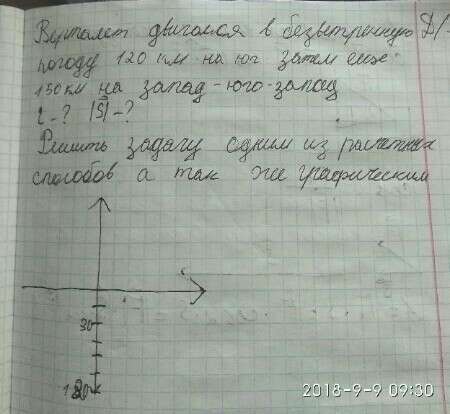 Вертолет двигался в безветренную Д/
погоду 120 км на юг затем еще
150 км на запад-юго-запад
l-? |S⃗|-?
Решить задачу одним из расчетных
способов а так же графическим
30
120
2018-9-9 09:30